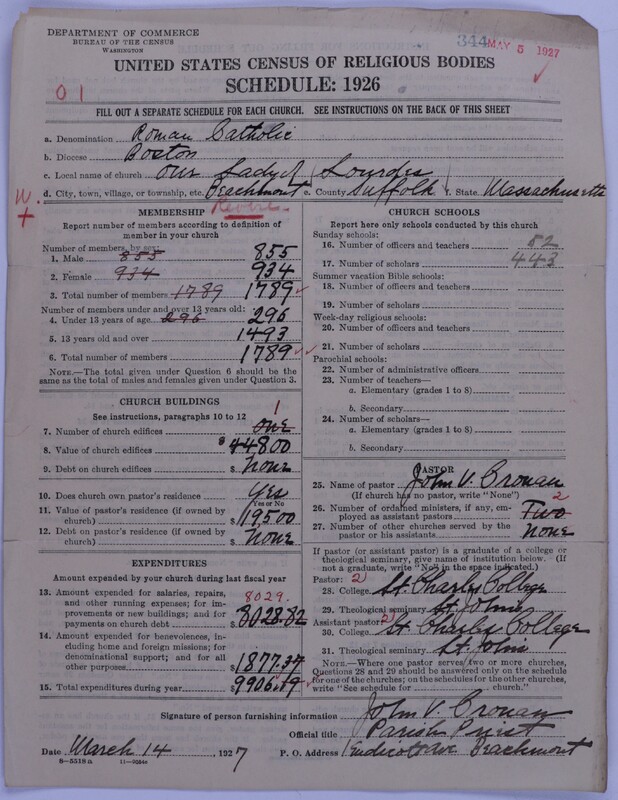 DEPARTMENT OF COMMERCE
BUREAU OF THE CENSUS
WASHINGTON
344 MAY 5 1927
UNITED STATES CENSUS OF RELIGIOUS BODIES
SCHEDULE: 1926
0 1
FILL OUT A SEPARATE SCHEDULE FOR EACH CHURCH. SEE INSTRUCTIONS ON THE BACK OF THIS SHEET
a. Denomination Roman Catholic
b. Diocese Boston
c. Local name of church Our Lady of Lourdes
d. City, town, village, or township, etc. Beachmont e. County Suffolk f. State Massachusetts
Revere
W
MEMBERSHIP
Report number of members according to definition of
member in your church
Number of members, by sex:
1. Male 855 855
2. Female 934 934
3. Total number of members 1789 1789
Number of members under and over 13 years old:
4. Under 13 years of age 296 296
5. 13 years old and over 1493
6. Total number of members 1789
NOTE.—The total given under Question 6 should be the
same as the total of males and females given under Question 3.
CHURCH BUILDINGS
See instructions, paragraphs 10 to 12
1
7. Number of church edifices One
8. Value of church edifices $44800
9. Debt on church edifices $ None
10. Does church own pastor's residence Yes
Yes or No
11. Value of pastor's residence (if owned by
church) $19500
12. Debt on pastor's residence (if owned by
church) $ None
EXPENDITURES
Amount expended by your church during last fiscal year
13. Amount expended for salaries, repairs,
and other running expenses; for im-
provements or new buildings; and for
payments on church debt $8028.82
8029.
14. Amount expended for benevolences,
including home and foreign missions; for
denominational support; and for all
other purposes $1877.37
15. Total expenditures during year $9906.19
CHURCH SCHOOLS
Report here only schools conducted by this church
Sunday schools:
16. Number of officers and teachers 52
17. Number of scholars 443
Summer vacation Bible schools:
18. Number of officers and teachers
19. Number of scholars
Week-day religious schools:
20. Number of officers and teachers
21. Number of scholars
Parochial schools:
22. Number of administrative officers
23. Number of teachers—
a. Elementary (grades 1 to 8)
b. Secondary
24. Number of scholars—
a. Elementary (grades 1 to 8)
b. Secondary
PASTOR
25. Name of pastor John V. Cronan
(If church has no pastor, write "None")
26. Number of ordained ministers, if any, em-
ployed as assistant pastors Two 2
27. Number of other churches served by the
pastor or his assistants None
If pastor (or assistant pastor) is a graduate of a college or
theological seminary, give name of institution below. (If
not a graduate, write "No" in the space indicated.)
Pastor: 2
28. College St. Charles College
29. Theological seminary St. Johns
Assistant pastor: 2
30. College St. Charles College
31. Theological seminary St. Johns
NOTE.—Where one pastor serves two or more churches,
Questions 28 and 29 should be answered only on the schedule
for one of the churches; on the schedules for the other churches,
write "See schedule for church."
Signature of person furnishing information John V. Cronan
Official title Parish Priest
Date March 14 1927 P. O. Address Endicott Ave Beachmont
8—5518 a 11—9024c